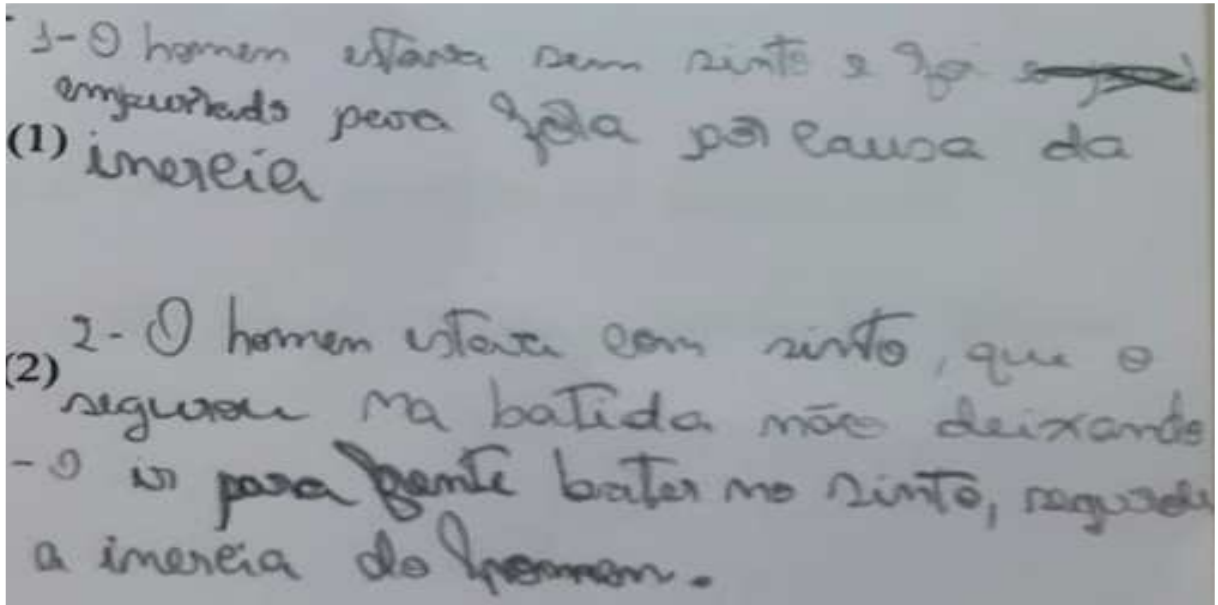 1- O homem estava sem sinto e foi
empurrado para fora por causa da
(1) inercia
2- O homem estava com sinto, que o
(2) segurou na batida não deixando
-o ir para frente bater no sinto, segurou
a inercia do homem.